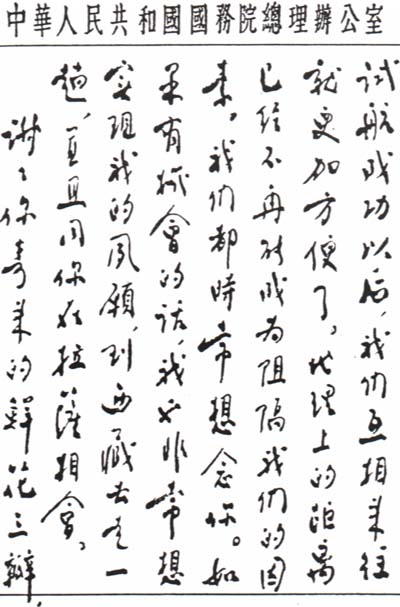 中華人民共和國國務院總理辦公室
試航成功以后，我们互相来往
就更加方便了。地理上的距离
已经不再能成为阻隔我们的因
素。我们都時常想念你。如
果有机會的话，我也非常想
实现我的夙願，到西藏去走一
趟，並且同你在拉薩相會。
謝谢你寄来的鮮花三瓣，